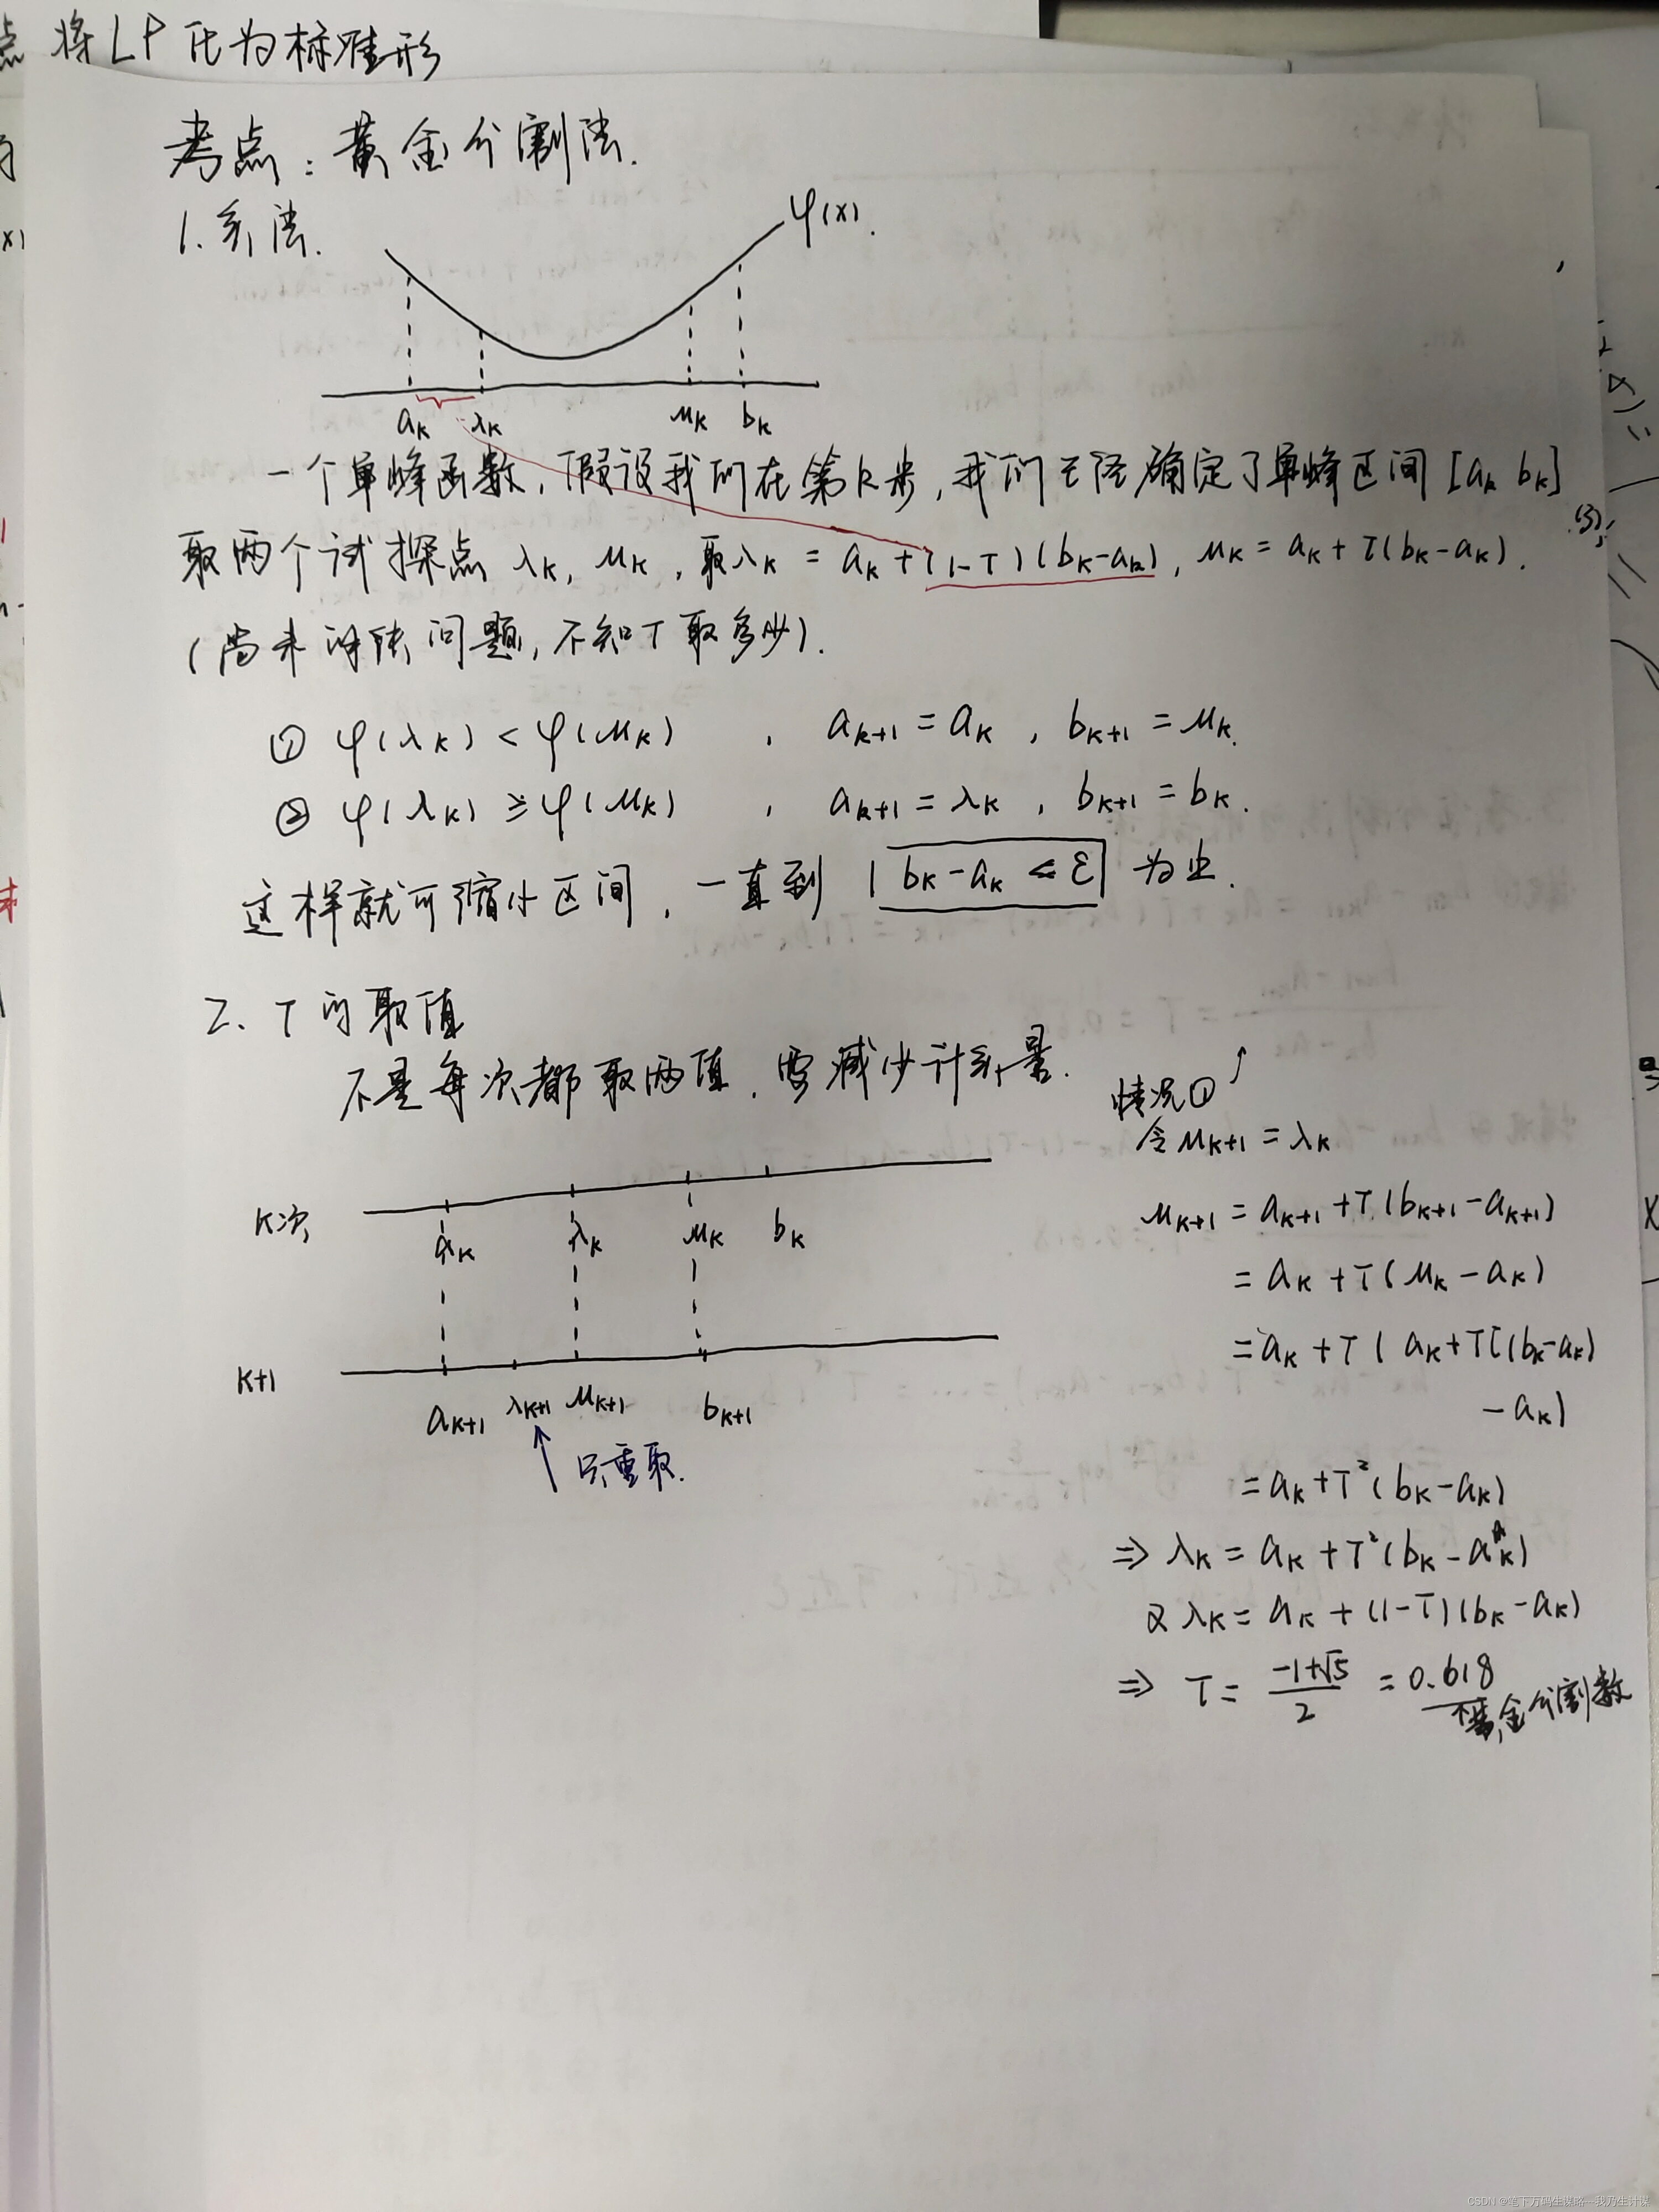 将LP化为标准形
考点：黄金分割法.
1. 算法.
φ(x).
aₖ λₖ μₖ bₖ
一个单峰函数，假设我们在第k步，我们已经确定了单峰区间 [aₖ bₖ]
取两个试探点 λₖ, μₖ，取λₖ = aₖ + (1-τ)(bₖ-aₖ), μₖ = aₖ + τ(bₖ-aₖ).
(尚未解决问题，不知τ取多少).
① φ(λₖ) < φ(μₖ) , aₖ₊₁ = aₖ , bₖ₊₁ = μₖ.
② φ(λₖ) ≥ φ(μₖ) , aₖ₊₁ = λₖ , bₖ₊₁ = bₖ.
这样就可缩小区间，一直到 | bₖ-aₖ ≤ ε| 为止.
2. τ的取值
不是每次都取两值，要减少计算量.
情况①
令μₖ₊₁ = λₖ
K次
aₖ λₖ μₖ bₖ
K+1
aₖ₊₁ λₖ₊₁ μₖ₊₁ bₖ₊₁
只重取.
μₖ₊₁ = aₖ₊₁ + τ(bₖ₊₁-aₖ₊₁)
= aₖ + τ(μₖ - aₖ)
= aₖ + τ( aₖ+τ(bₖ-aₖ)
- aₖ)
= aₖ+τ²(bₖ-aₖ)
⇒ λₖ = aₖ + τ²(bₖ-aₖ)
又 λₖ = aₖ + (1-τ)(bₖ-aₖ)
⇒ τ = (-1+√5)/2 = 0.618
黄金分割数
CSDN @笔下万码生谋略---我乃生计谋